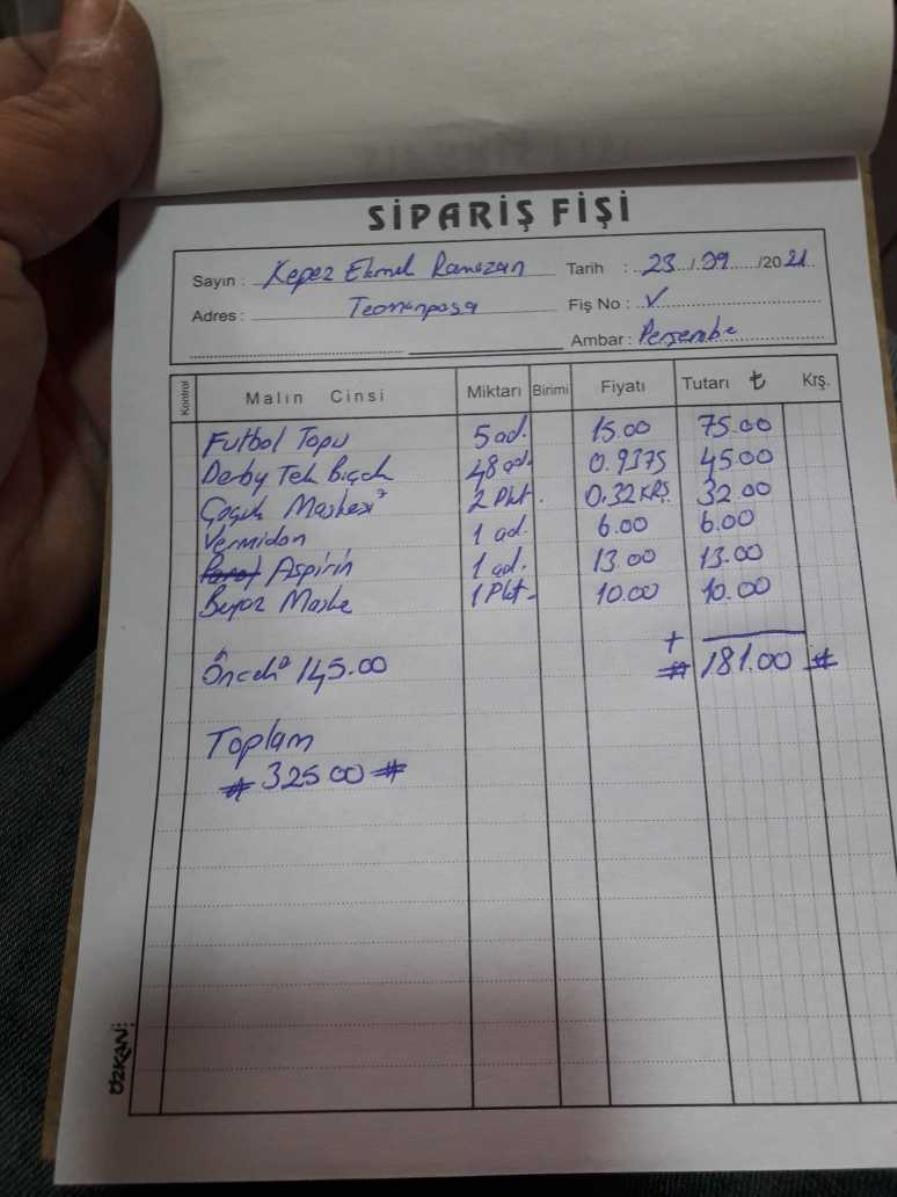 SİPARİŞ FİŞİ
Sayın : Kepez Ekmel Ramazan Tarih : 23/09/2021
Adres : Teomanpaşa Fiş No : ✓
Ambar : Perşembe
Kontrol Malın Cinsi Miktarı Birimi Fiyatı Tutarı ₺ Krş.
Futbol Topu 5 ad. 15.00 75.00
Derby Tek Bıçak 48 ad. 0.9375 45.00
Çoçuk Maskesi 2 Pkt. 0.32 KRŞ 32.00
Vermidon 1 ad. 6.00 6.00
Aspirin 1 ad. 13.00 13.00
Beyaz Maske 1 Pkt. 10.00 10.00
+
Önceki 145.00 # 181.00 #
Toplam
# 325 00 #
ÖZKAN